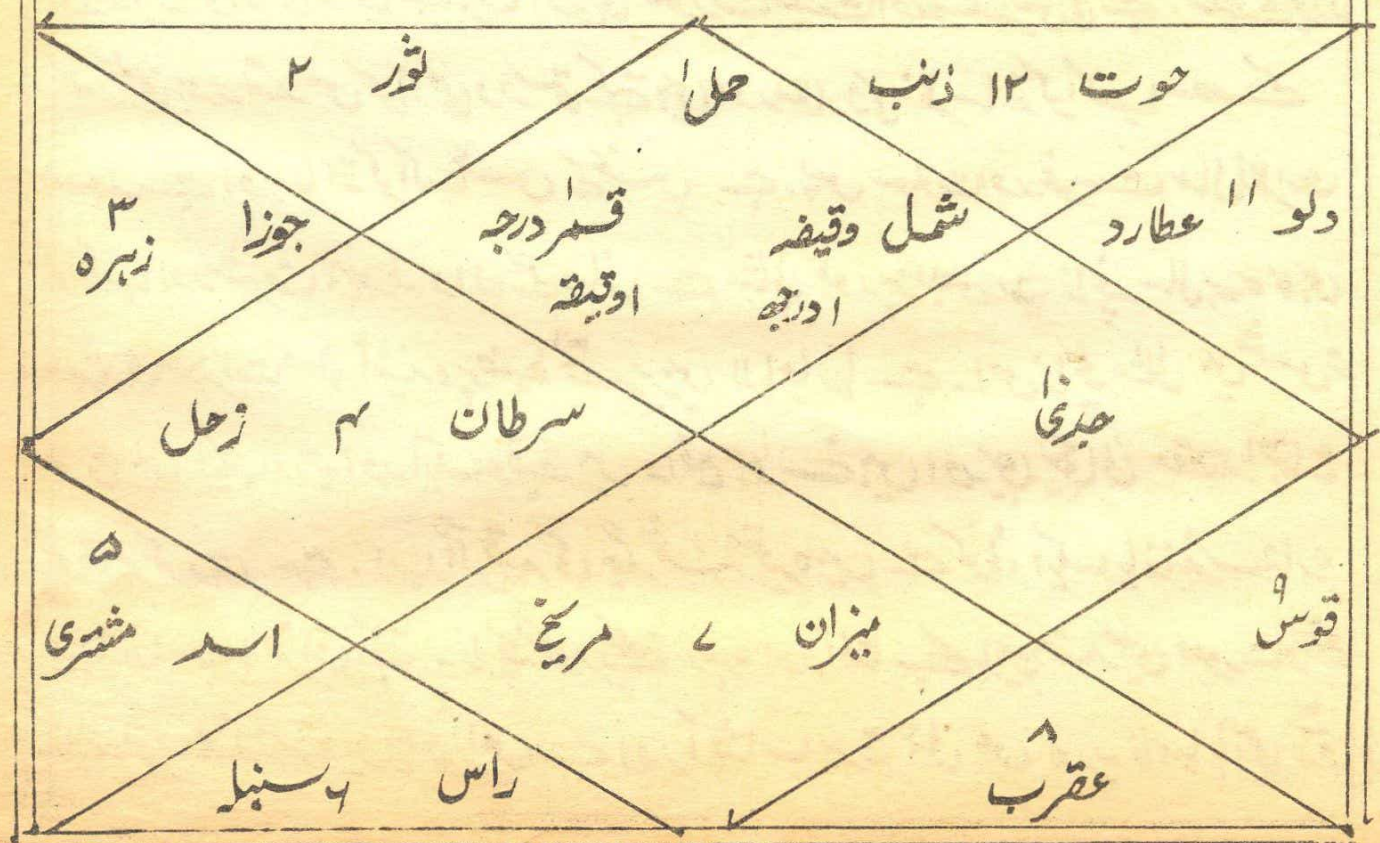 حوت ۱۲ ذنب
حمل ۱
ثور ۲
دلو ۱۱ عطارد
شمس دقیقہ
۱ درجہ
قمر درجہ
۱ دقیقہ
جوزا ۳
زہرہ
جدی ۱۰
سرطان ۴ زحل
قوس ۹
میزان ۷ مریخ
اسد مشتری
۵
عقرب ۸
راس ۶ سنبلہ